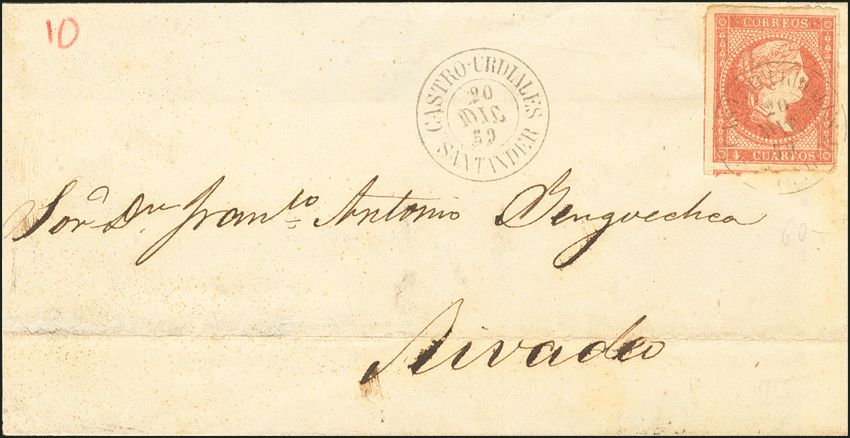 10
CASTRO-URDIALES
20
DIC
59
SANTANDER
CORREOS
20
DIC
4 CUARTOS
Sor. Dn. Franco. Antonio Bengoechea
Rivadeo
60-